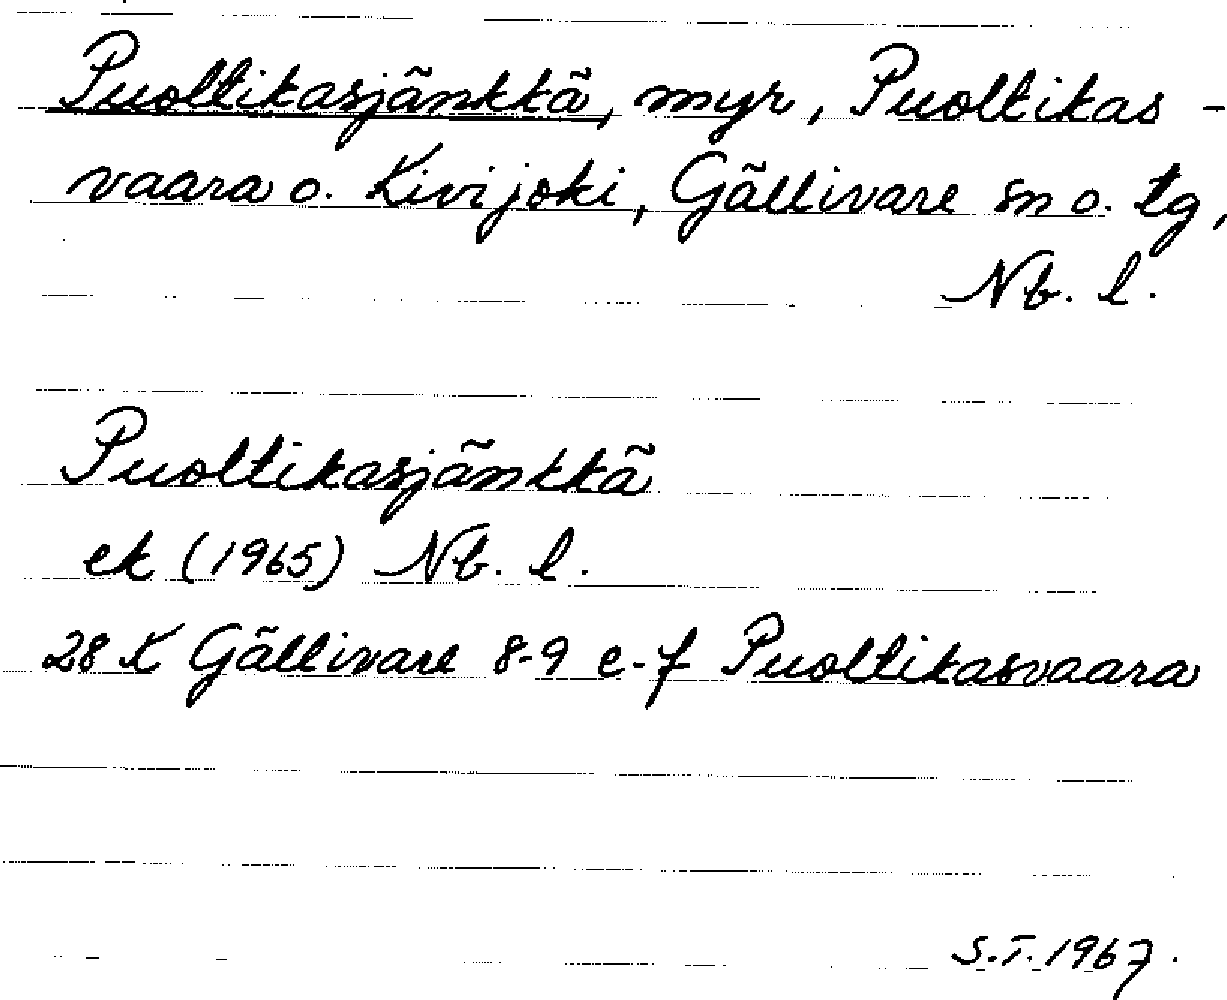 Puoltikasjänkkä, myr, Puoltikas-
vaara o. Kivijoki, Gällivare sn o. tg,
Nb. l.
Puoltikasjänkkä
ek (1965) Nb. l.
28 K Gällivare 8-9 e-f Puoltikasvaara
S.T. 1967.